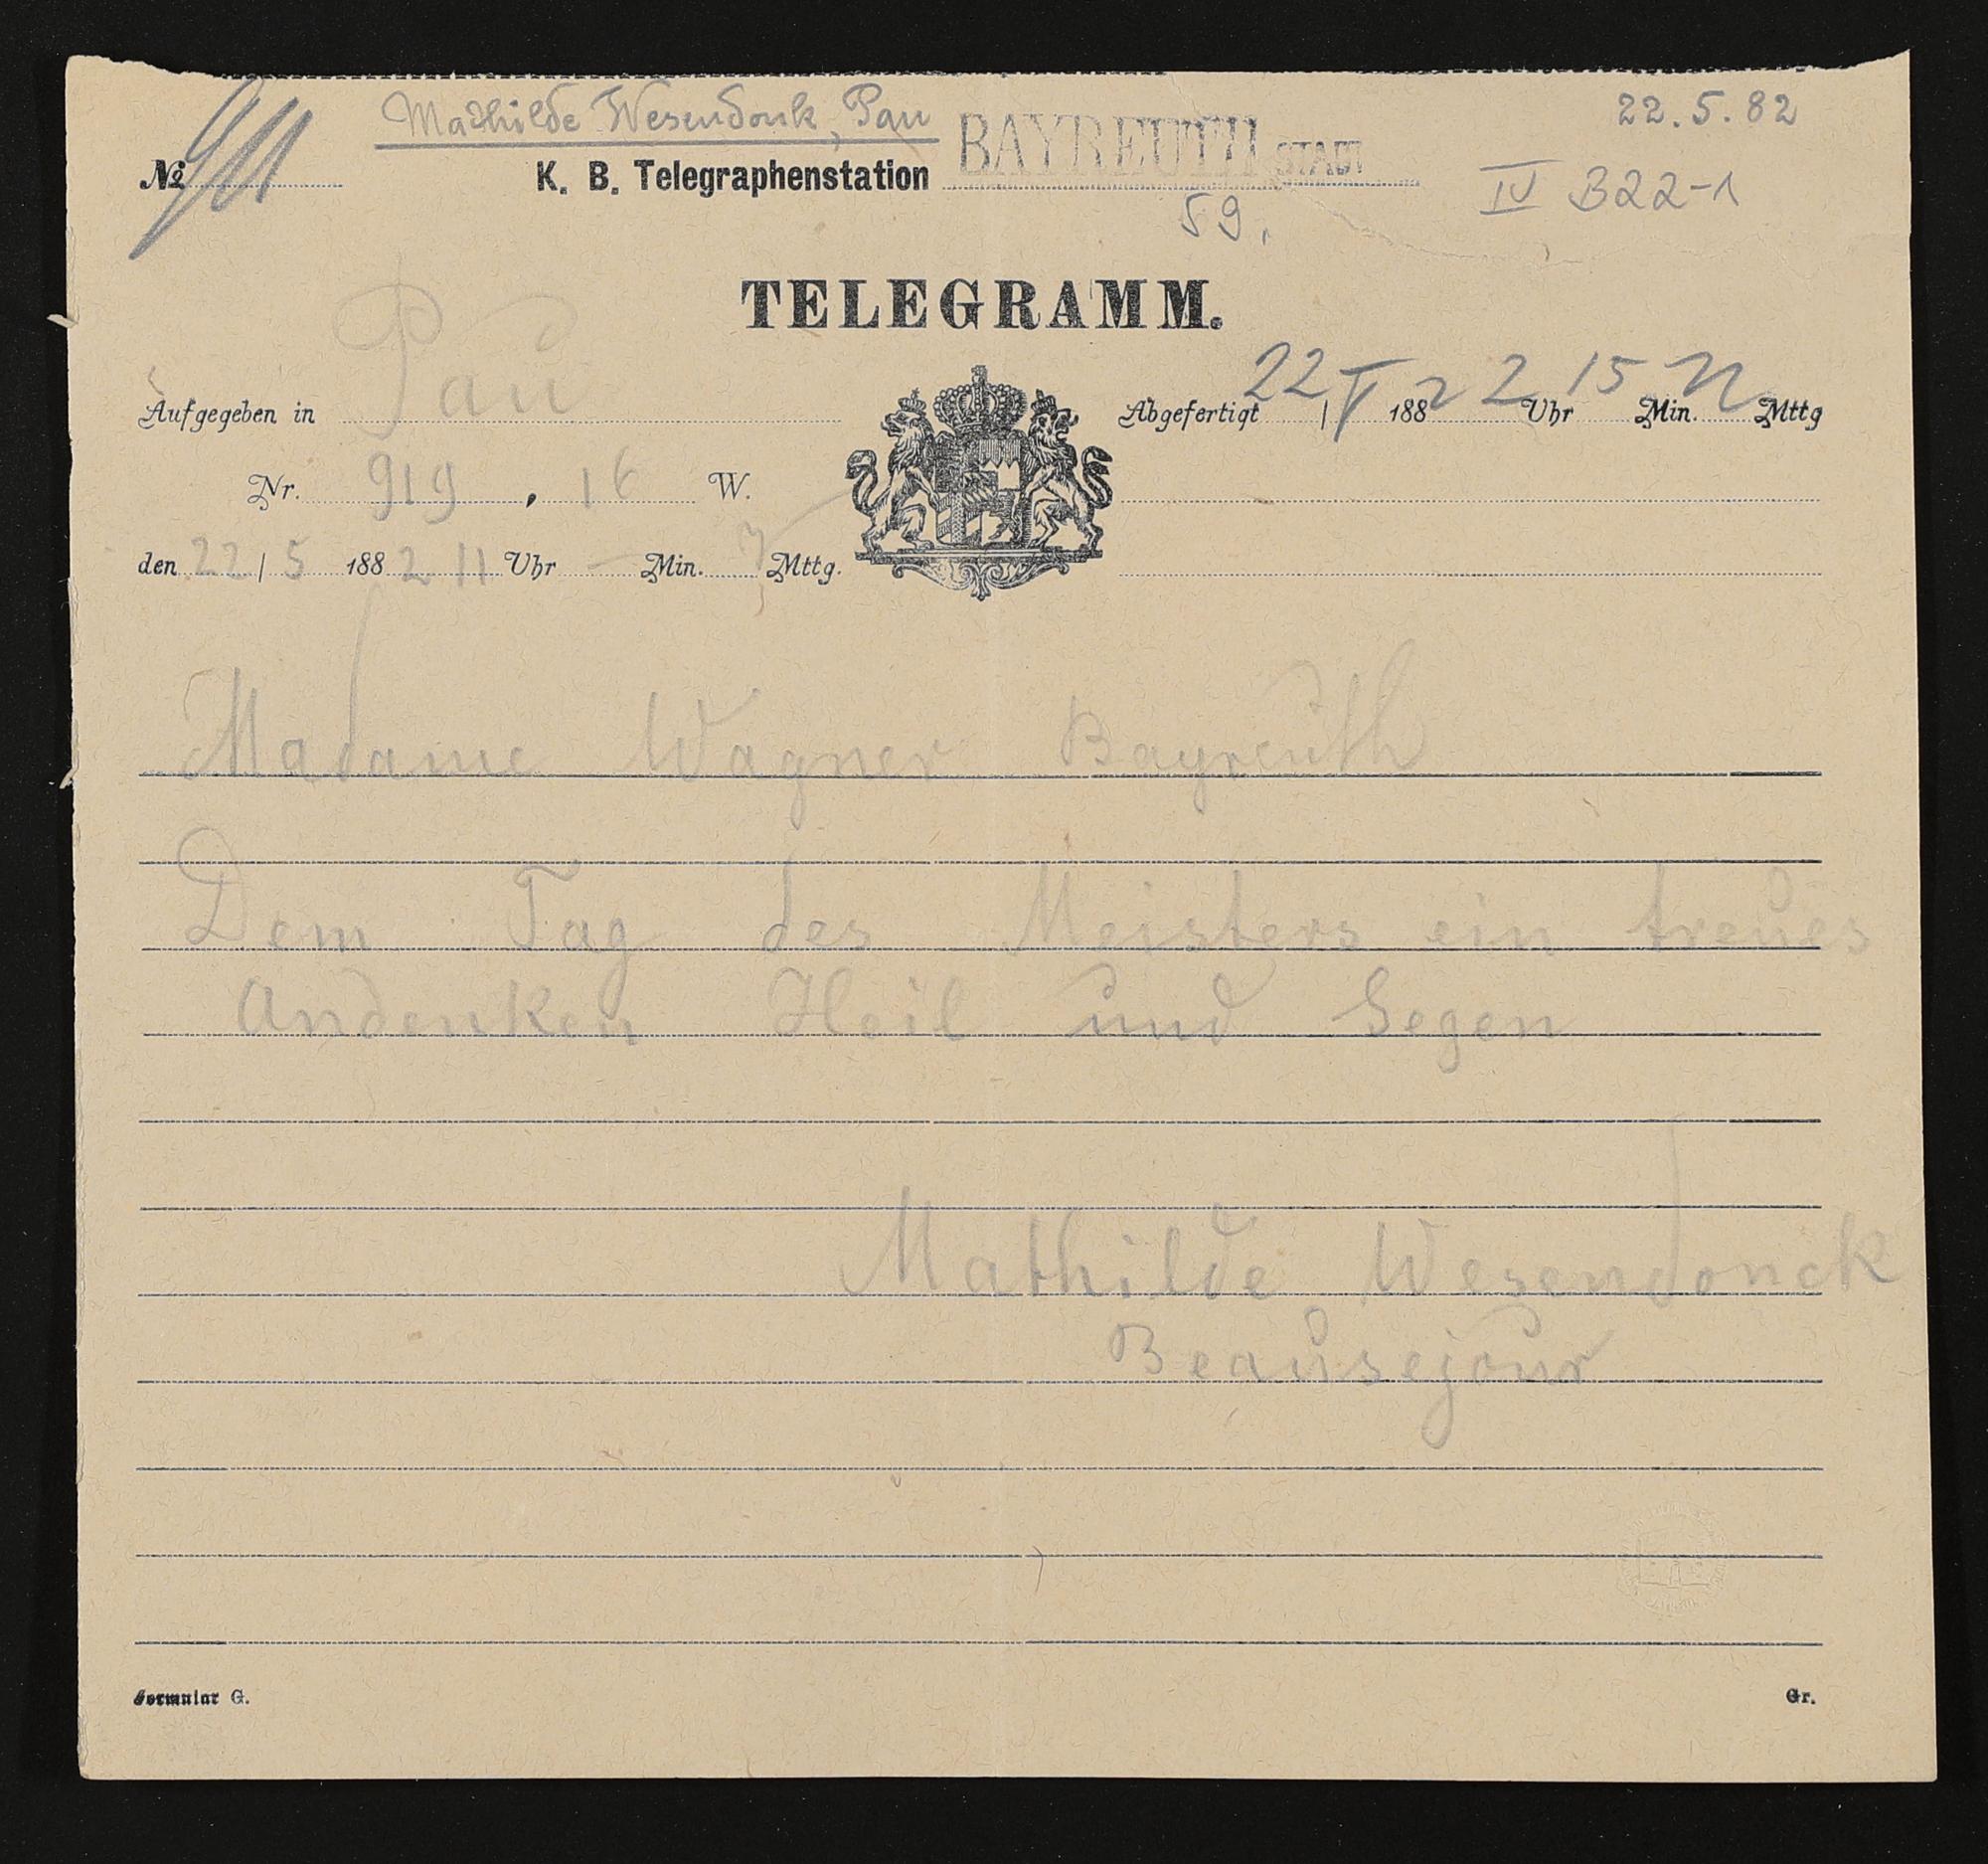 Mathilde Wesendonk, Pau
22.5.82
№ 911
K. B. Telegraphenstation BAYREUTH STADT
IV B22-1
59.
TELEGRAMM.
Aufgegeben in Pau
Abgefertigt 22 / V 1882 2 Uhr 15 Min. N Mttg
Nr. 919, 16 W.
den 22 / 5 1882 11 Uhr – Min. Mttg.
Madame Wagner Bayreuth
Dem Tag des Meisters ein treues
Andenken Heil und Segen
Mathilde Wesendonck
Beausejour
Formular G.
Gr.